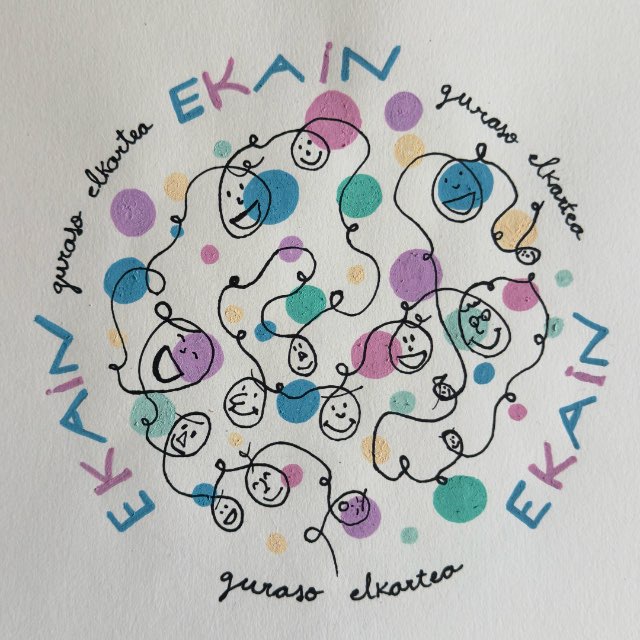 EKAiN
guraso elkartea
EKAiN
guraso elkartea
EKAiN
guraso elkartea